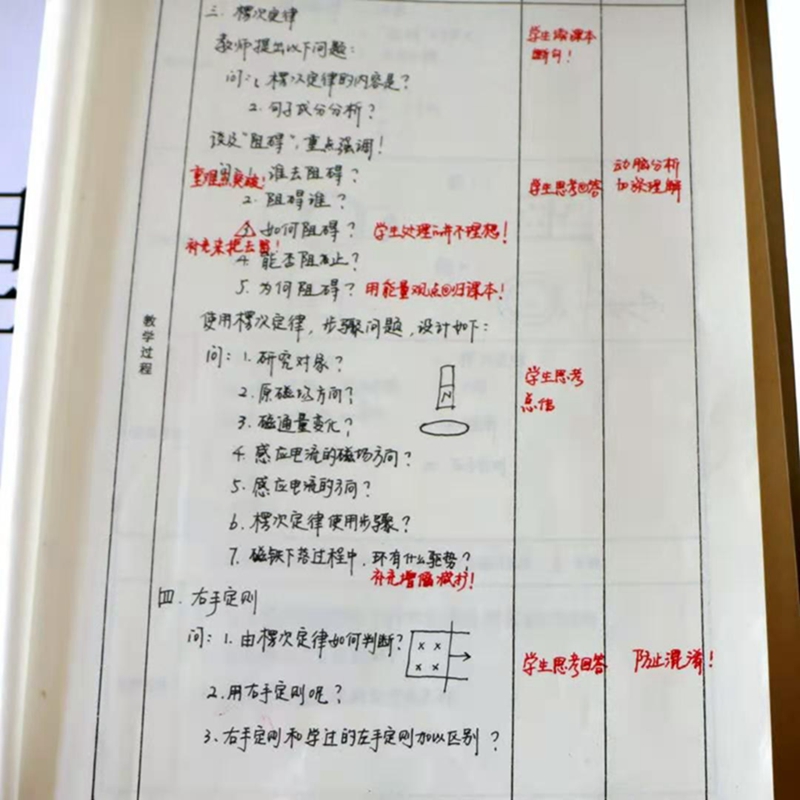 三、楞次定律
学生读课本
断句!
教师提出以下问题:
问:1. 楞次定律的内容是?
2. 句子成分分析?
谈及“阻碍”,重点强调!
重难点突破!
1. 谁去阻碍?
学生思考回答
动脑分析
加深理解
2. 阻碍谁?
3. 如何阻碍? 学生处理的并不理想!
补充来拒去留!
4. 能否阻止?
5. 为何阻碍? 用能量观点回归课本!
使用楞次定律,步骤问题,设计如下:
教学过程
问:1. 研究对象?
学生思考
点偣
2. 原磁场方向?
N
3. 磁通量变化?
4. 感应电流的磁场方向?
5. 感应电流的方向?
6. 楞次定律使用步骤?
7. 磁铁下落过程中,环有什么趋势?
补充增缩减扩!
四、右手定则
问:1. 由楞次定律如何判断?
× ×
× ×
学生思考回答
防止混淆!
2. 用右手定则呢?
3. 右手定则和学过的左手定则加以区别?